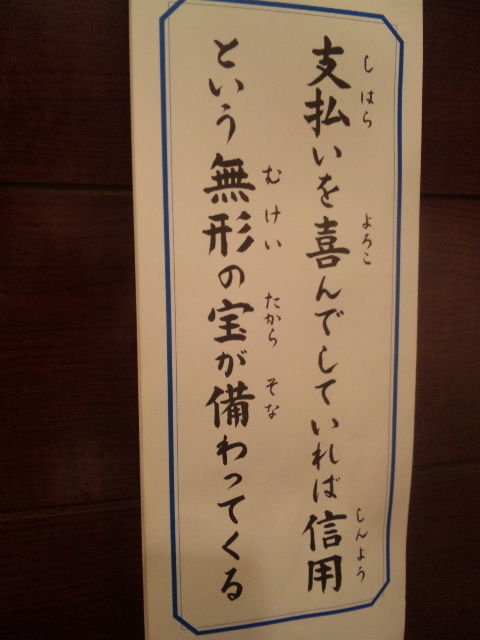 支払いを喜んでしていれば信用
しはら よろこ しんよう
という無形の宝が備わってくる
むけい たから そな